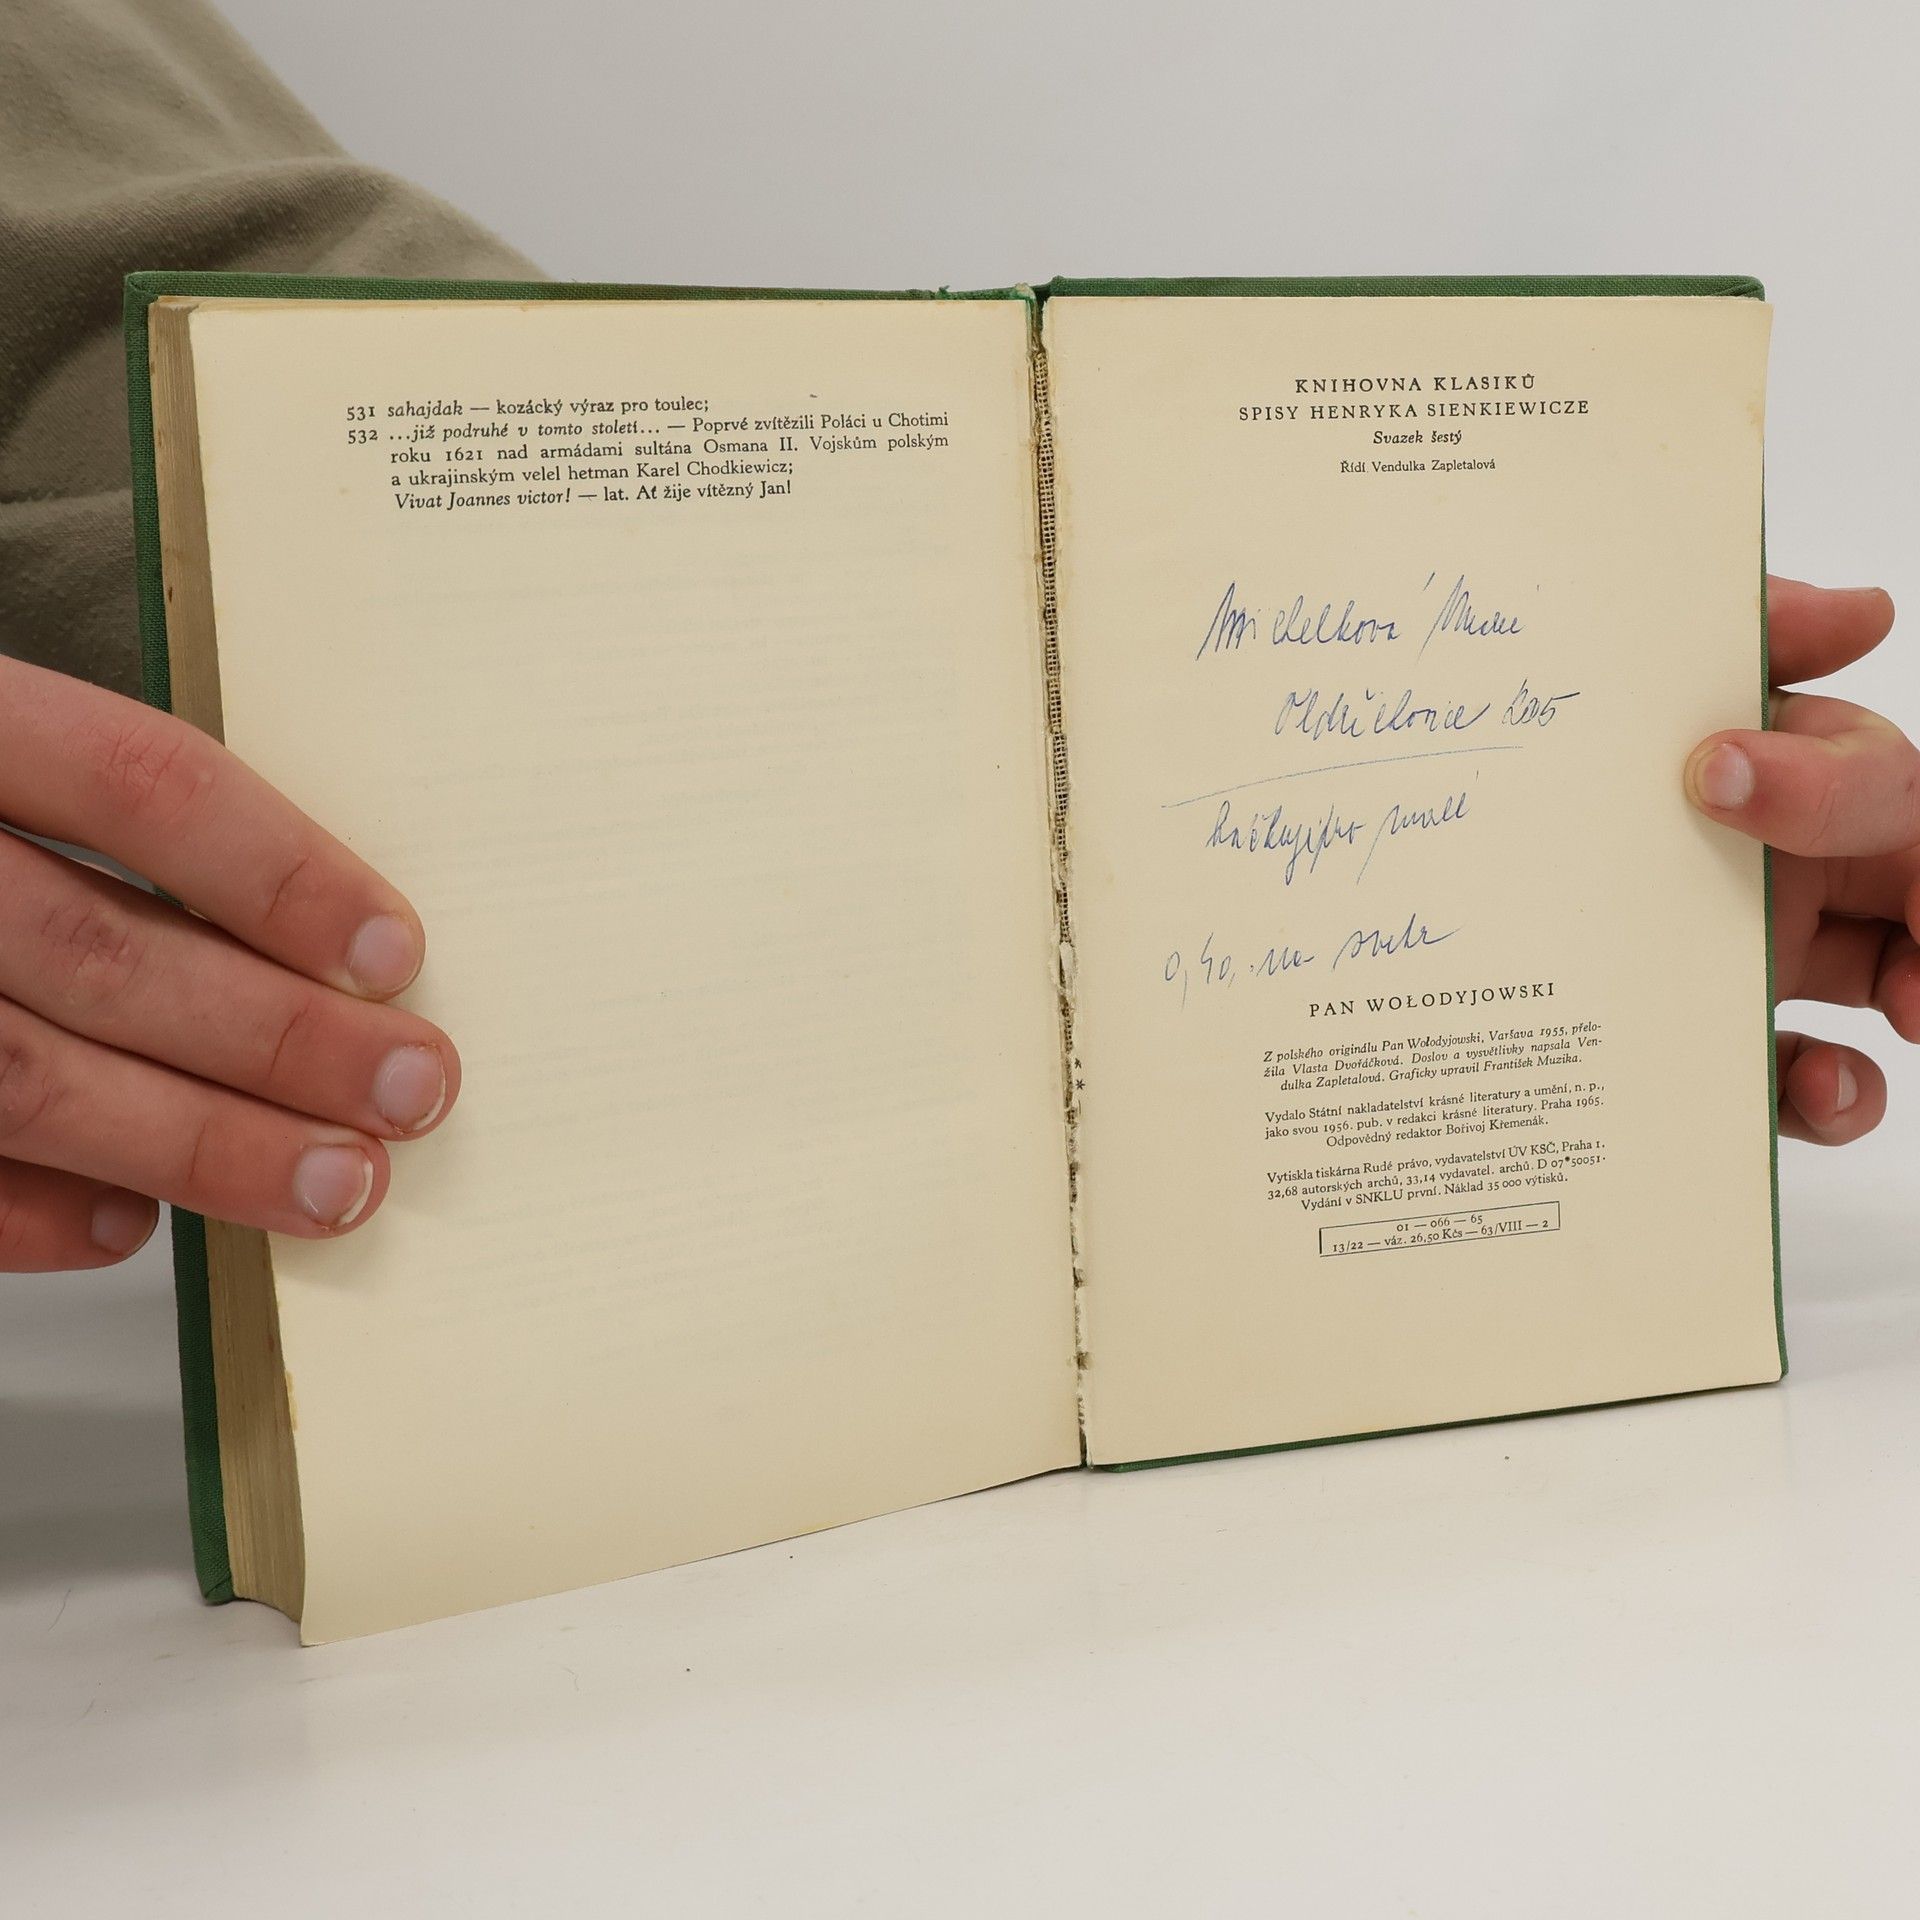 531 sahajdak — kozácký výraz pro toulec;
532 ...již podruhé v tomto století... — Poprvé zvítězili Poláci u Chotimi
roku 1621 nad armádami sultána Osmana II. Vojskům polským
a ukrajinským velel hetman Karel Chodkiewicz;
Vivat Joannes victor! — lat. Ať žije vítězný Jan!
KNIHOVNA KLASIKŮ
SPISY HENRYKA SIENKIEWICZE
Svazek šestý
Řídí Vendulka Zapletalová
Michelková
Oldřichovice 205
pro
0,40, na svetr
PAN WOŁODYJOWSKI
Z polského originálu Pan Wołodyjowski, Varšava 1955, přelo-
žila Vlasta Dvořáčková. Doslov a vysvětlivky napsala Ven-
dulka Zapletalová. Graficky upravil František Muzika.
Vydalo Státní nakladatelství krásné literatury a umění, n. p.,
jako svou 1956. pub. v redakci krásné literatury. Praha 1965.
Odpovědný redaktor Bořivoj Křemenák.
Vytiskla tiskárna Rudé právo, vydavatelství ÚV KSČ, Praha 1.
32,68 autorských archů, 33,14 vydavatel. archů. D 07*50051.
Vydání v SNKLU první. Náklad 35 000 výtisků.
01 — 066 — 65
13/22 — váz. 26,50 Kčs — 63/VIII — 2